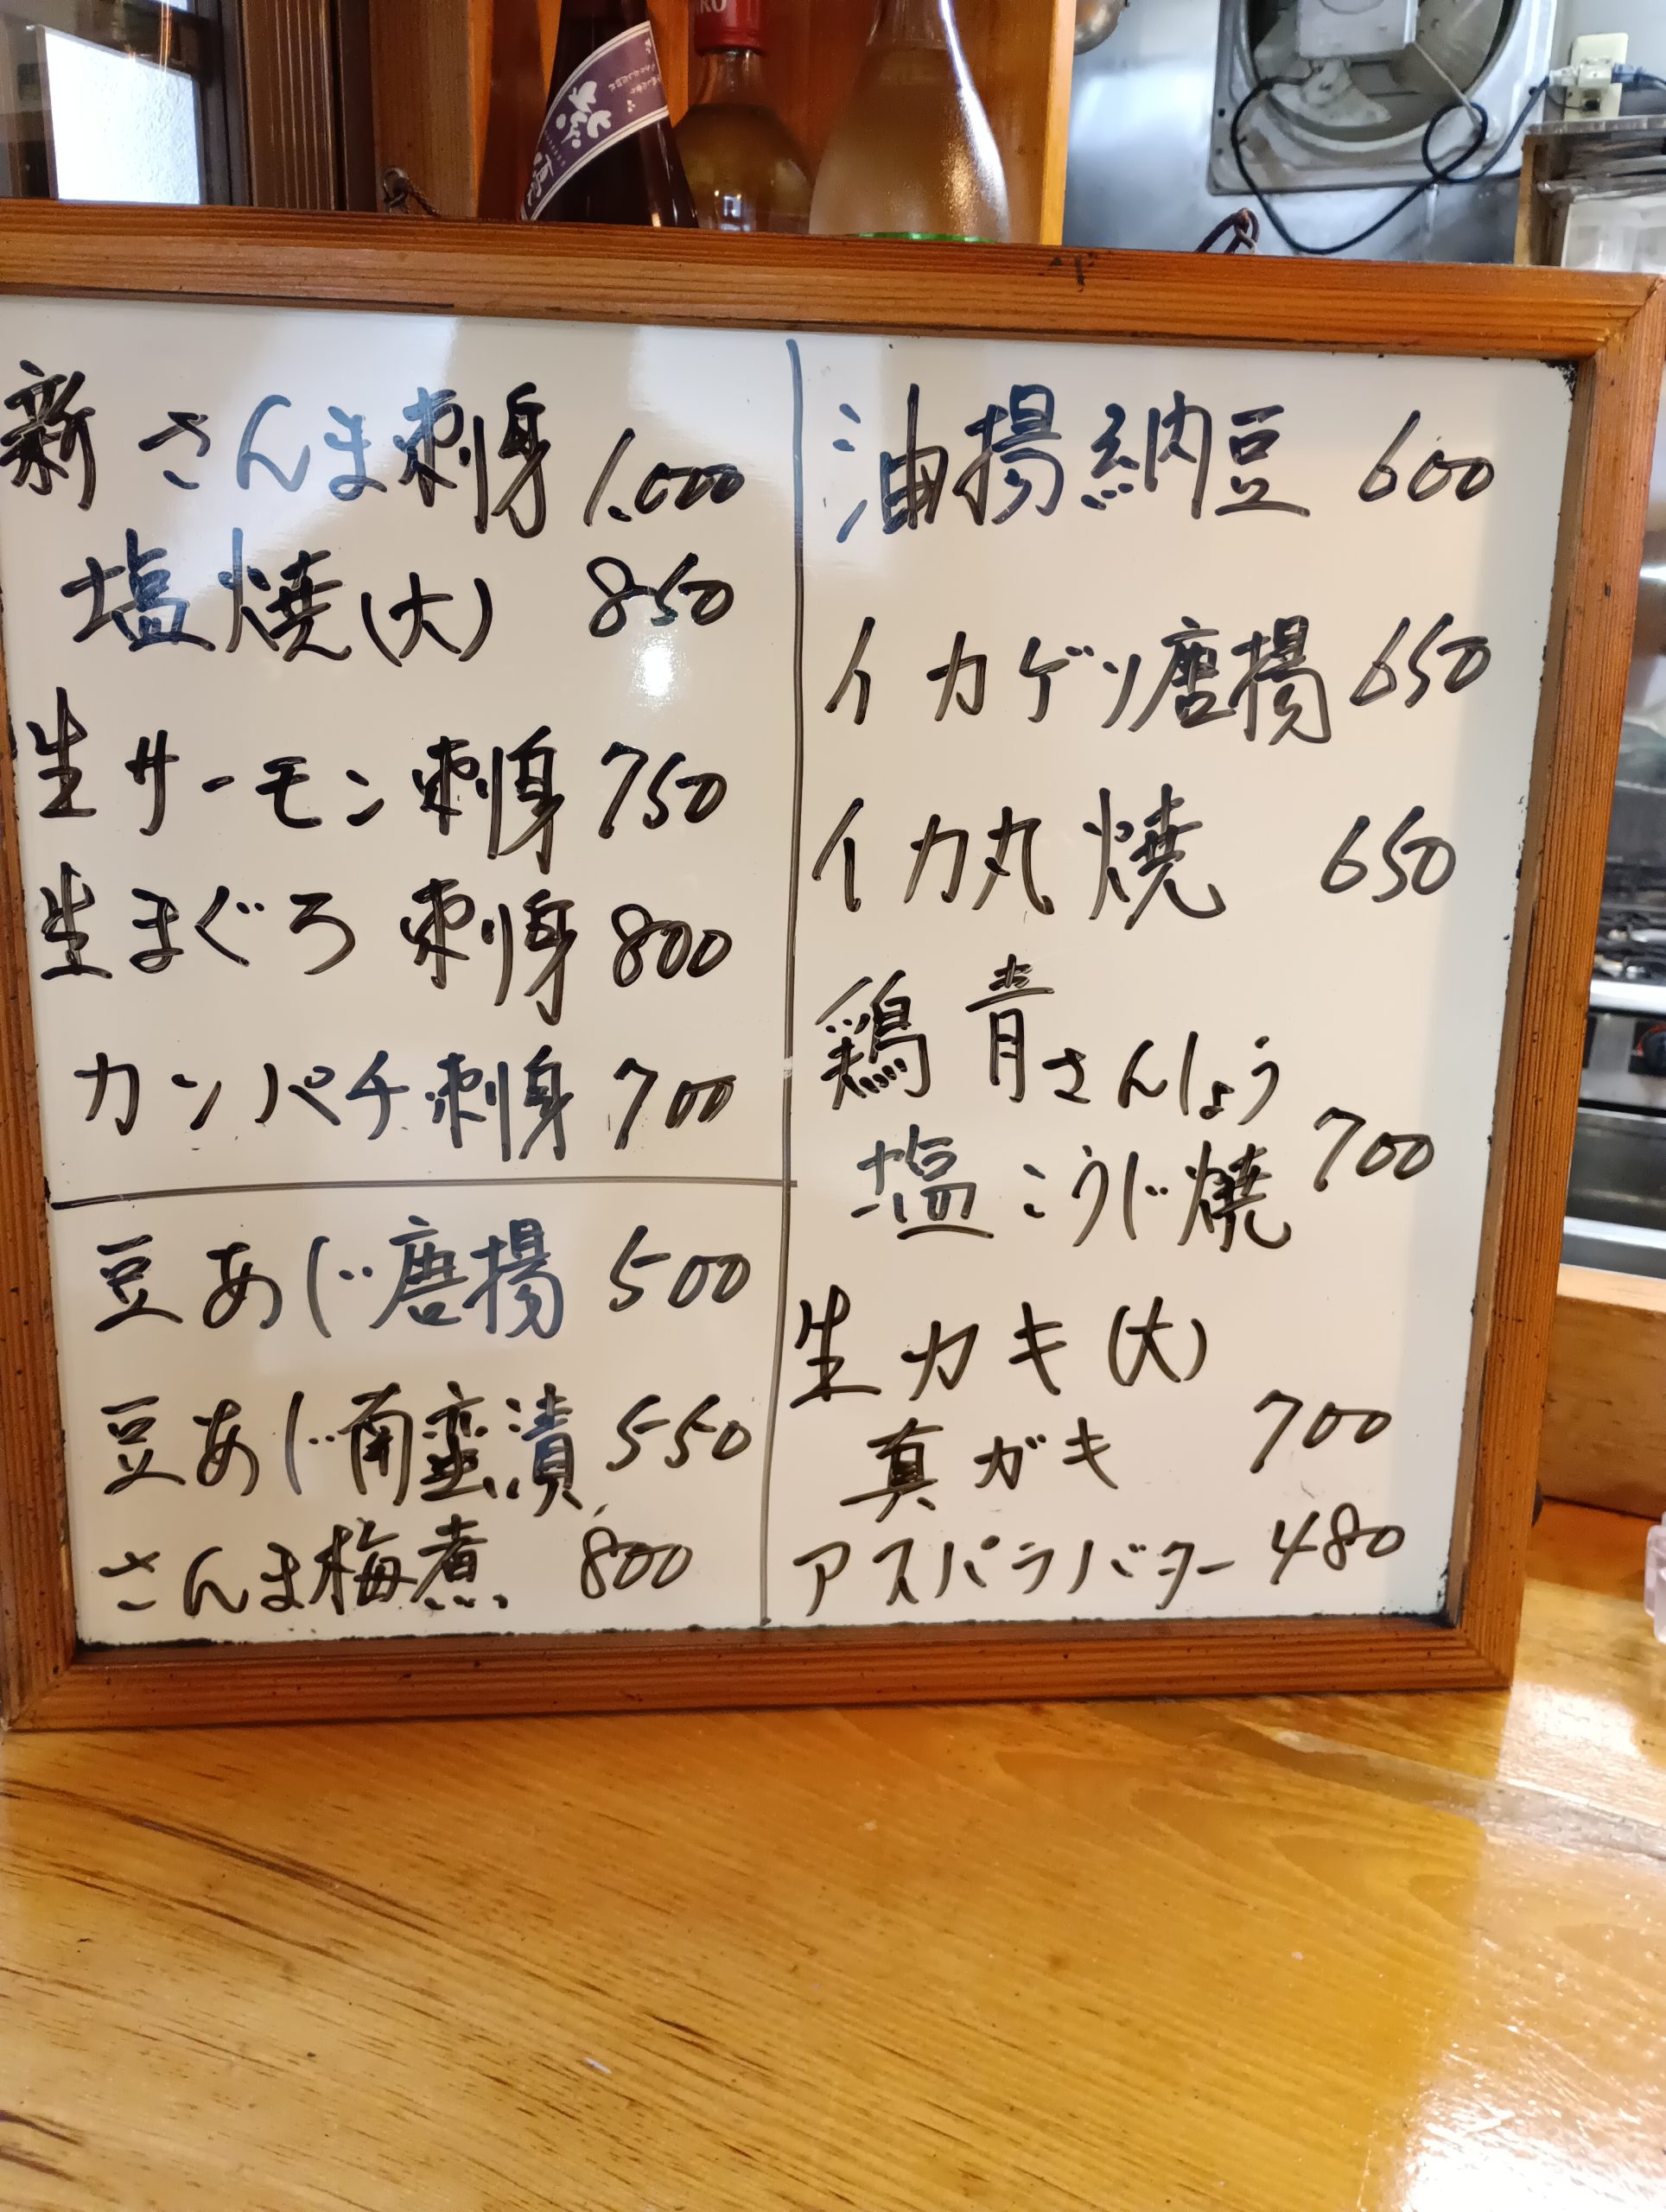 新さんま刺身 1.000
塩焼(大) 850
生サーモン刺身 750
生まぐろ刺身 800
カンパチ刺身 700
豆あじ唐揚 500
豆あじ南蛮漬 550
さんま梅煮 800
油揚納豆 600
イカゲソ唐揚 650
イカ丸焼 650
鶏青さんしょう
塩こうじ焼 700
生カキ(大)
真ガキ 700
アスパラバター 480